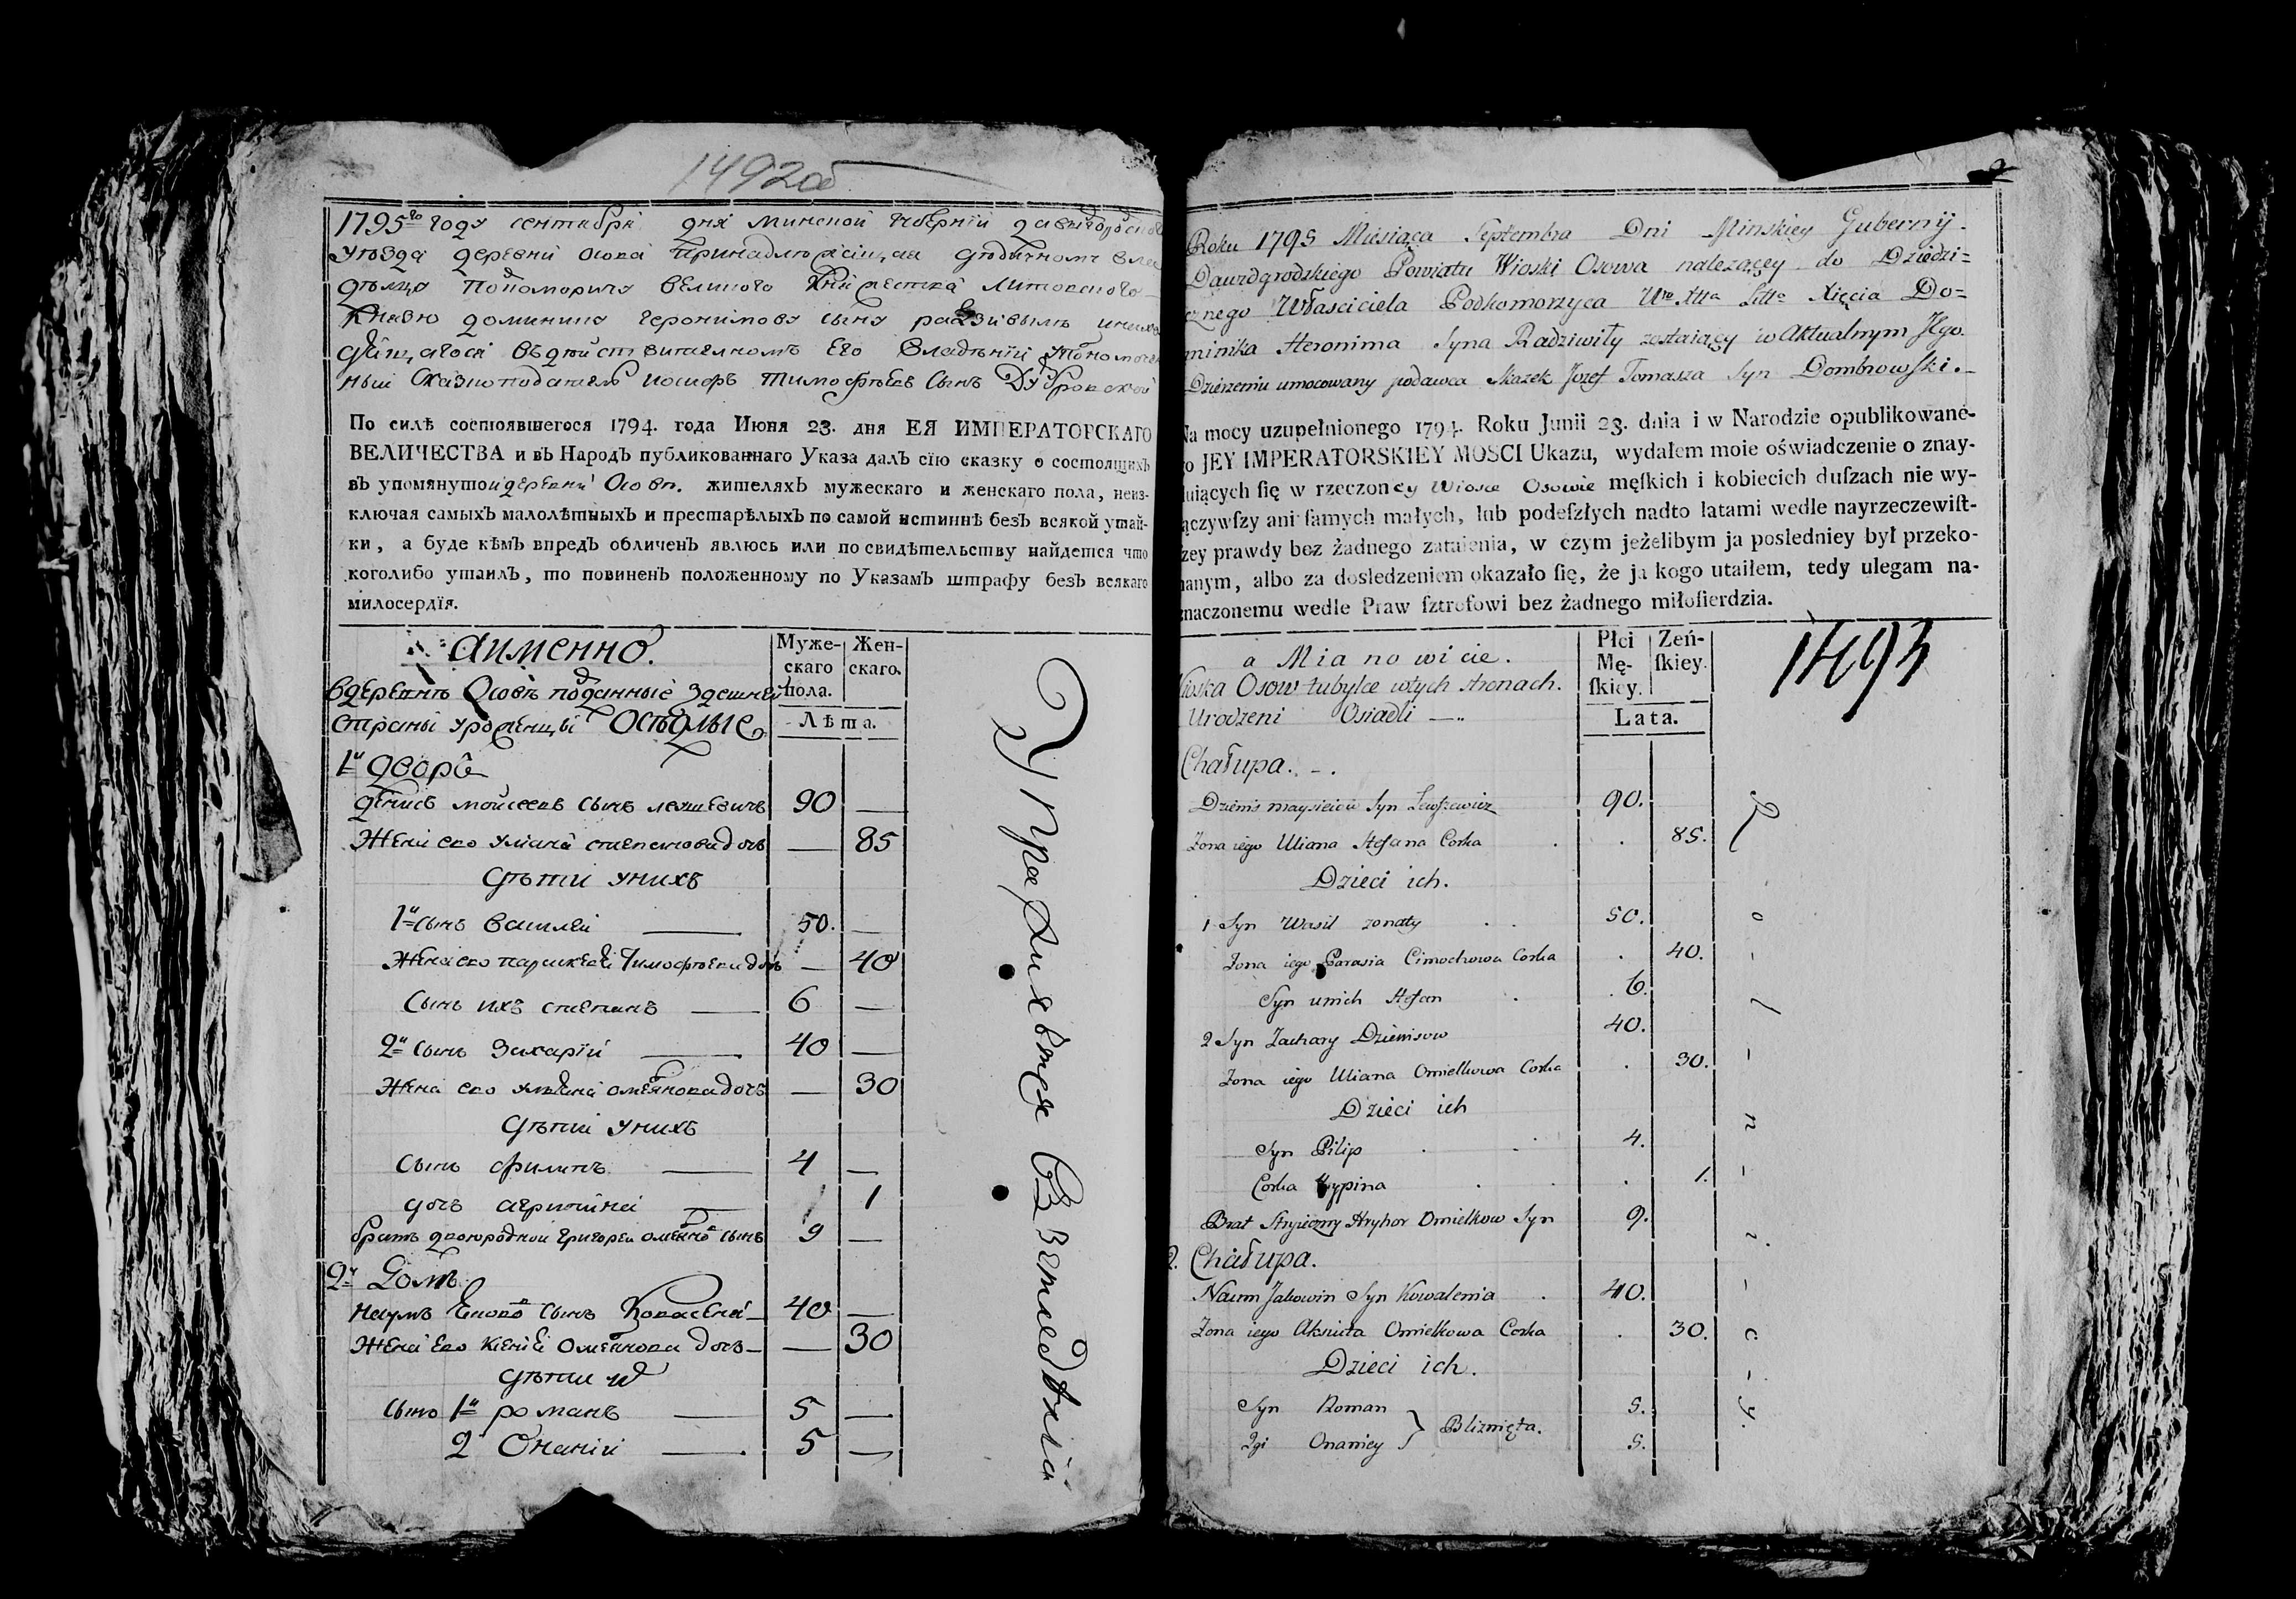 1492об
1795го году сентября дня минской губернїи давыдгородского
уезда деревни осова принадлежащая дедичному вла
дельцу подкоморичу великого княжества литовского
князю доминику иеронимову сыну радзивилу
дящагося въ действителномъ его владенїи упономоче
ный сказкоподатель иосифъ тимофеевъ сынъ Дубровской
По силѣ состоявшегося 1794. года Июня 23. дня ЕЯ ИМПЕРАТОРСКАГО
ВЕЛИЧЕСТВА и въ Народъ публикованнаго Указа далъ сїю сказку о состоящихъ
въ упомянутой деревни Осове. жителяхъ мужескаго и женскаго пола, неиз-
ключая самыхъ малолѣтныхъ и престарѣлыхъ по самой истиннѣ безъ всякой утай-
ки, а буде кѣмъ впредъ обличенъ явлюсь или по свидѣтельству найдется что
коголибо утаилъ, то повиненъ положенному по Указамъ штрафу безъ всякаго
милосердїя.
аименно.
Муже-
скаго
пола.
Жен-
скаго.
Лѣта.
вдеревне Осове подданные здешней
страны уроженцы оседлые
1й дворъ
денисъ мойсеевъ сынъ левшевичъ 90 —
жена его улiана степанова дочь — 85
дети унихъ
1й сынъ василей — 50. —
жена его параскевiя тимофеева дочь — 40
сынъ ихъ степанъ — 6 —
2й сынъ Захарїй — 40 —
жена его улiана омелянова дочь — 30
дети унихъ
сынъ филипъ — 4 —
дочь агрипина — 1
братъ двоюродной григорей омеляновъ сынъ 9 —
2й Домъ
наумъ яковъ сынъ Коваленя 40 —
жена его ксенiя омелянова дочь — 30
дети их
сынъ 1й романъ — 5 —
2 Онанїй — 5 —
Roku 1795 Miesiąca Septembra Dni Minskiey Gubernij.
Dawidgrodzkiego Powiatu Wioski Osowa nalezącey do Dziedzi=
cznego Własciciela Podkomorzyca Wgo Xtta Litto Xięcia Do=
minika Heronima Syna Radziwiły zostaiącey w Aktualnym Jego
Dzierzeniu umocowany podawca Skazek Jozef Tomasza Syn Dombrowski.
Na mocy uzupełnionego 1794. Roku Junii 23. dnia i w Narodzie opublikowane-
go JEY IMPERATORSKIEY MOSCI Ukazu, wydałem moie oświadczenie o znay-
duiących ſię w rzeczoney Wiosce Osowie męſkich i kobiecich duſzach nie wy-
łączywſzy ani ſamych małych, lub podeſzłych nadto latami wedle nayrzeczewiſt-
szey prawdy bez żadnego zataienia, w czym jeżelibym ja posledniey był przeko-
nanym, albo za dosledzeniem okazało ſię, że ja kogo utaiłem, tedy ulegam na-
znaczonemu wedle Praw ſztrofowi bez żadnego miłoſierdzia.
a Mianowicie.
Płci
Mę-
ſkiey.
Zeń-
ſkiey.
Lata.
1493
Wioska Osow tubylce wtych stronach.
Urodzeni Osiadli
Chałupa.
Dzienis Maysieiow Syn Lewszewicz 90.
Zona iego Uliana Stefana Corka 85.
Dzieci ich.
1 Syn Wasil zonaty 50.
Zona iego Parasia Cimochowa Corka 40.
Syn unich Stefan 6.
2 Syn Zachary Dzienisow 40.
Zona iego Uliana Omielkowa Corka 30.
Dzieci ich
Syn Pilip 4.
Corka Hypina 1.
Brat Stryieczny Hryhor Omielkow Syn 9.
2. Chałupa.
Naum Jakowin Syn Kowalenia 40.
Zona iego Aksiuta Omielkowa Corka 30.
Dzieci ich.
Syn Roman } Bliznięta. 5.
2gi Onaniey 5.
R-o-l-n-i-c-y.